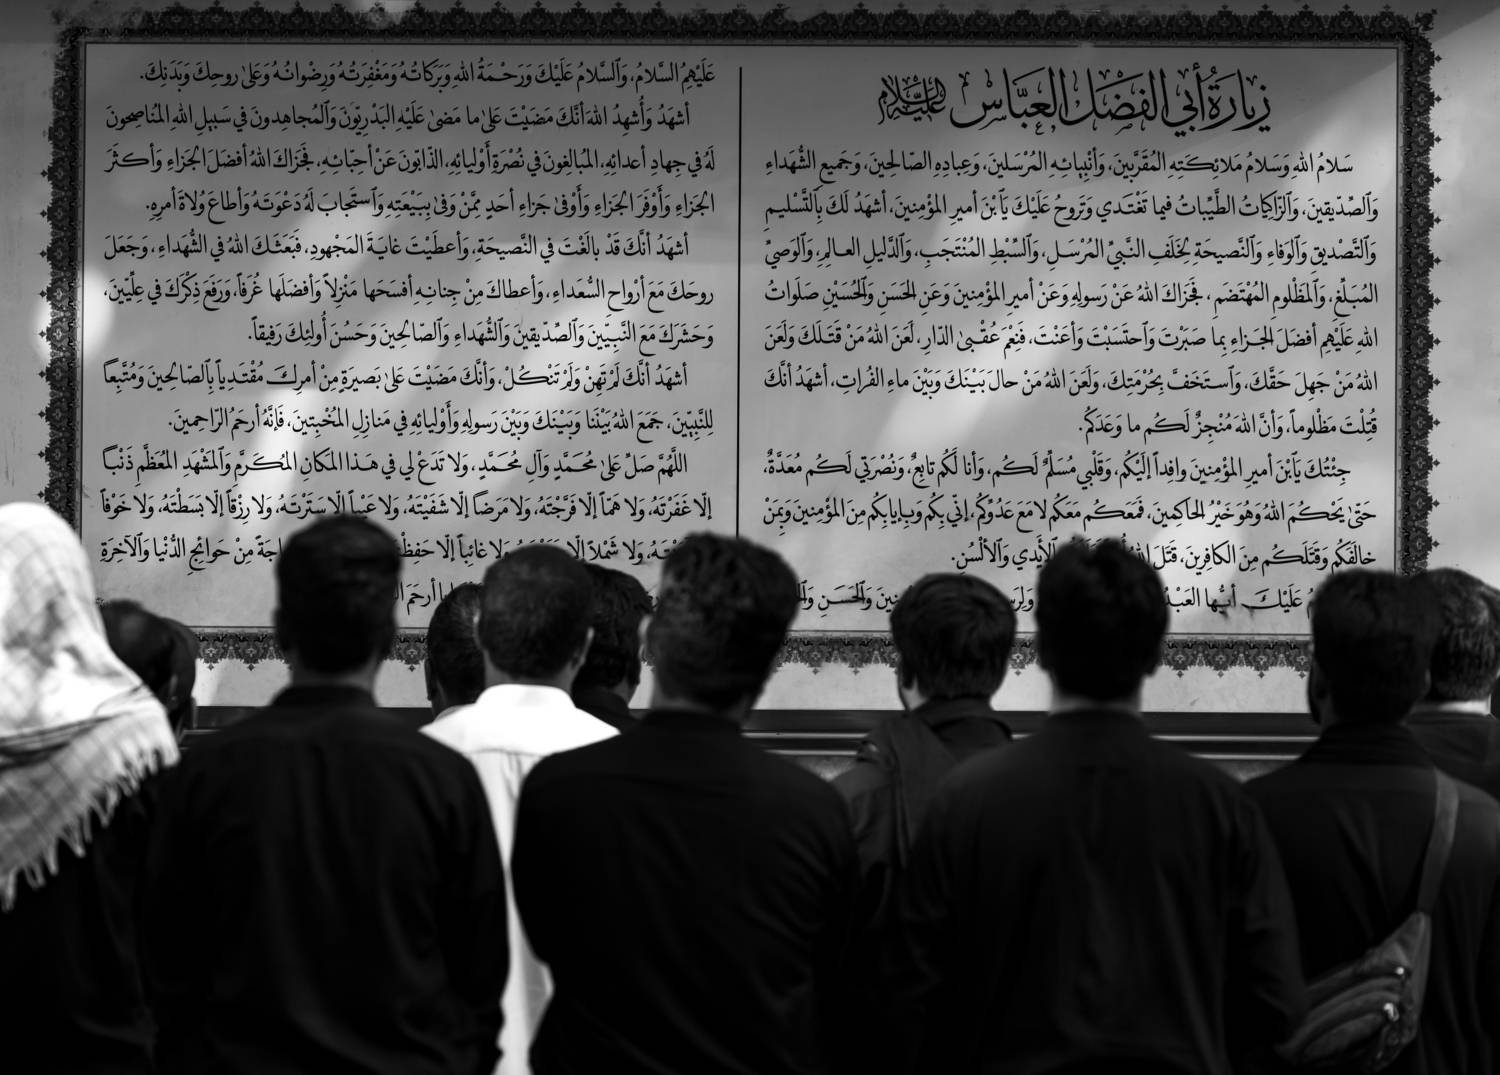 زِيارَةُ أَبي الفَضْلِ العَبّاسِ عَلَيْهِ السَّلامُ
سَلامُ اللهِ وَسَلامُ مَلائِكَتِهِ المُقَرَّبينَ، وَأَنْبِيائِهِ المُرْسَلينَ، وَعِبادِهِ الصّالِحينَ، وَجَميعِ الشُّهَداءِ
وَٱلصِّدّيقينَ، وَٱلزّاكِياتُ الطَّيِّباتُ فيما تَغْتَدي وَتَروحُ عَلَيْكَ يَا ٱبْنَ أَميرِ المُؤْمِنينَ، أَشهَدُ لَكَ بِالتَّسْليمِ
وَٱلتَّصْديقِ وَٱلوَفاءِ وَٱلنَّصيحَةِ لِخَلَفِ النَّبيِّ المُرْسَلِ، وَٱلسِّبْطِ المُنْتَجَبِ، وَٱلدَّليلِ العالِمِ، وَٱلوَصيِّ
المُبَلِّغِ، وَٱلمَظْلومِ المُهْتَضَمِ، فَجَزاكَ اللهُ عَنْ رَسولِهِ وَعَنْ أَميرِ المُؤْمِنينَ وَعَنِ الحَسَنِ وَٱلحُسَيْنِ صَلَواتُ
اللهِ عَلَيْهِم أَفضَلَ الجَزاءِ بِما صَبَرْتَ وَٱحتَسَبْتَ وَأَعَنْتَ، فَنِعْمَ عُقْبىٰ الدّارِ، لَعَنَ اللهُ مَنْ قَتَلَكَ وَلَعَنَ
اللهُ مَنْ جَهِلَ حَقَّكَ، وَٱسـتَخَفَّ بِحُرْمَتِكَ، وَلَعَنَ اللهُ مَنْ حالَ بَيْنَكَ وَبَيْنَ ماءِ الفُراتِ، أَشهَدُ أَنَّكَ
قُتِلْتَ مَظْلوماً، وَأَنَّ اللهَ مُنْجِزٌ لَكُم ما وَعَدَكُم.
جِئْتُكَ يَا ٱبْنَ أَميرِ المُؤْمِنينَ وافِداً إِلَيْكُم، وَقَلْبي مُسَلِّمٌ لَكُم، وَأَنا لَكُم تابِعٌ، وَنُصْرَتي لَكُم مُعَدَّةٌ،
حَتّىٰ يَحْكُمَ اللهُ وَهُوَ خَيْرُ الحاكِمينَ، فَمَعَكُم مَعَكُم لا مَعَ عَدُوِّكُم، إِنّي بِكُم وَبِإِيابِكُم مِنَ المُؤْمِنينَ وَبِمَنْ
خالَفَكُم وَقَتَلَكُم مِنَ الكافِرينَ، قَتَلَ اللهُ الأَيدي وَٱلأَلْسُنِ.
عَلَيْكَ أَيُّها العَبْدُ وَٱلحَسَنِ
عَلَيْهِمُ السَّلامُ، وَٱلسَّلامُ عَلَيْكَ وَرَحْمَةُ اللهِ وَبَرَكاتُهُ وَمَغْفِرَتُهُ وَرِضْوانُهُ وَعَلىٰ روحِكَ وَبَدَنِكَ.
أَشهَدُ وَأُشْهِدُ اللهَ أَنَّكَ مَضَيْتَ عَلىٰ ما مَضىٰ عَلَيْهِ البَدْرِيّونَ وَٱلمُجاهِدونَ في سَبيلِ اللهِ المُناصِحونَ
لَهُ في جِهادِ أَعدائِهِ، المُبالِغونَ في نُصْرَةِ أَوْلِيائِهِ، الذّابّونَ عَنْ أَحِبّائِهِ، فَجَزاكَ اللهُ أَفضَلَ الجَزاءِ وَأَكثَرَ
الجَزاءِ وَأَوْفَرَ الجَزاءِ وَأَوْفىٰ جَزاءِ أَحَدٍ مِمَّنْ وَفىٰ بِبَيْعَتِهِ وَٱسْتَجابَ لَهُ دَعْوَتَهُ وَأَطاعَ وُلاةَ أَمرِهِ.
أَشهَدُ أَنَّكَ قَدْ بالَغْتَ في النَّصيحَةِ، وَأَعطَيْتَ غايَةَ المَجْهودِ، فَبَعَثَكَ اللهُ في الشُّهَداءِ، وَجَعَلَ
روحَكَ مَعَ أَرواحِ السُّعَداءِ، وَأَعطاكَ مِنْ جِنانِهِ أَفسَحَها مَنْزِلاً وَأَفضَلَها غُرَفاً، وَرَفَعَ ذِكْرَكَ في عِلِّيّينَ،
وَحَشَرَكَ مَعَ النَّبِيّينَ وَٱلصِّدّيقينَ وَٱلشُّهَداءِ وَٱلصّالِحينَ وَحَسُنَ أُولئِكَ رَفيقاً.
أَشهَدُ أَنَّكَ لَمْ تَهِنْ وَلَمْ تَنْكُلْ، وَأَنَّكَ مَضَيْتَ عَلىٰ بَصيرَةٍ مِنْ أَمرِكَ مُقْتَدِياً بِٱلصّالِحينَ وَمُتَّبِعاً
لِلنَّبِيّينَ، جَمَعَ اللهُ بَيْنَنا وَبَيْنَكَ وَبَيْنَ رَسولِهِ وَأَوْلِيائِهِ في مَنازِلِ المُخْبِتينَ، فَإِنَّهُ أَرحَمُ الرّاحِمينَ.
اللَّهُمَّ صَلِّ عَلىٰ مُحَمَّدٍ وَآلِ مُحَمَّدٍ، وَلا تَدَعْ لي في هَذا المَكانِ المُكَرَّمِ وَٱلمَشْهَدِ المُعَظَّمِ ذَنْباً
إِلّا غَفَرْتَهُ، وَلا هَمّاً إِلّا فَرَّجْتَهُ، وَلا مَرَضاً إِلّا شَفَيْتَهُ، وَلا عَيْباً إِلّا سَتَرْتَهُ، وَلا رِزْقاً إِلّا بَسَطْتَهُ، وَلا خَوْفاً
وَلا شَمْلاً إِلّا وَلا غائِباً إِلّا مِنْ حَوائِجِ الدُّنْيا وَٱلآخِرَةِ
أَرحَمَ